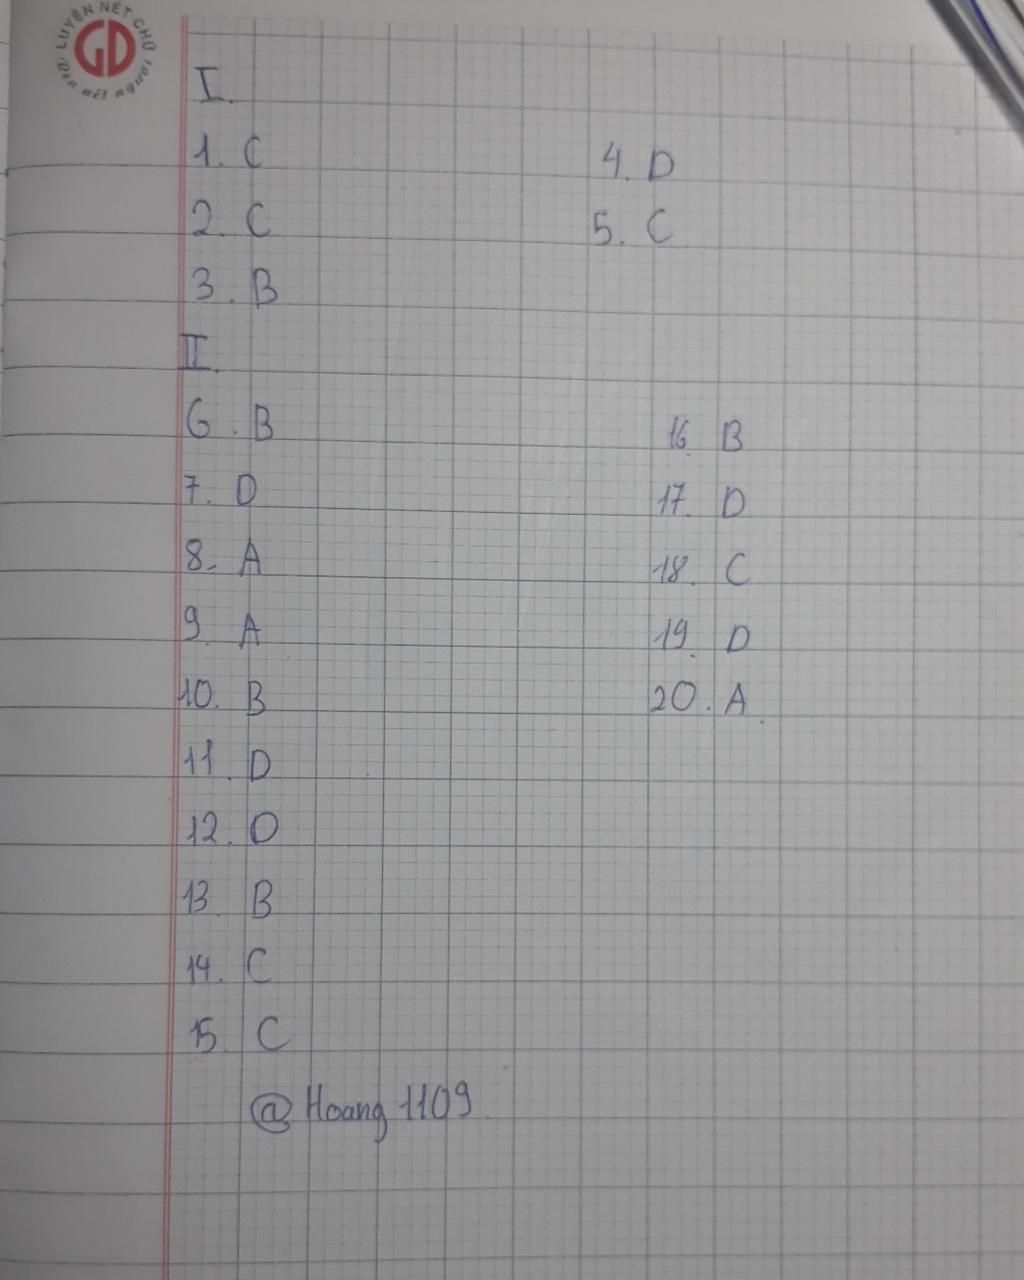 LUYỆN NÉT CHỮ
GD
Rèn nết người
I.
1. C
2. C
3. B
4. D
5. C
II.
6. B
7. D
8. A
9. A
10. B
11. D
12. D
13 B
14. C
15 C
16 B
17. D
18. C
19. D
20. A.
@Hoang 1109